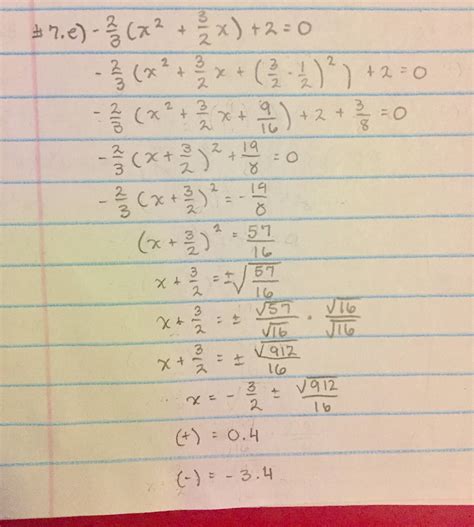 #7.e) -2/3 (x² + 3/2 x) + 2 = 0
-2/3 (x² + 3/2 x + (3/2 · 1/2)²) + 2 = 0
-2/3 (x² + 3/2 x + 9/16) + 2 + 3/8 = 0
-2/3 (x + 3/2)² + 19/8 = 0
-2/3 (x + 3/2)² = -19/8
(x + 3/2)² = 57/16
x + 3/2 = ±√(57/16)
x + 3/2 = ± √57/√16 · √16/√16
x + 3/2 = ± √912/16
x = -3/2 ± √912/16
(+) = 0.4
(-) = -3.4